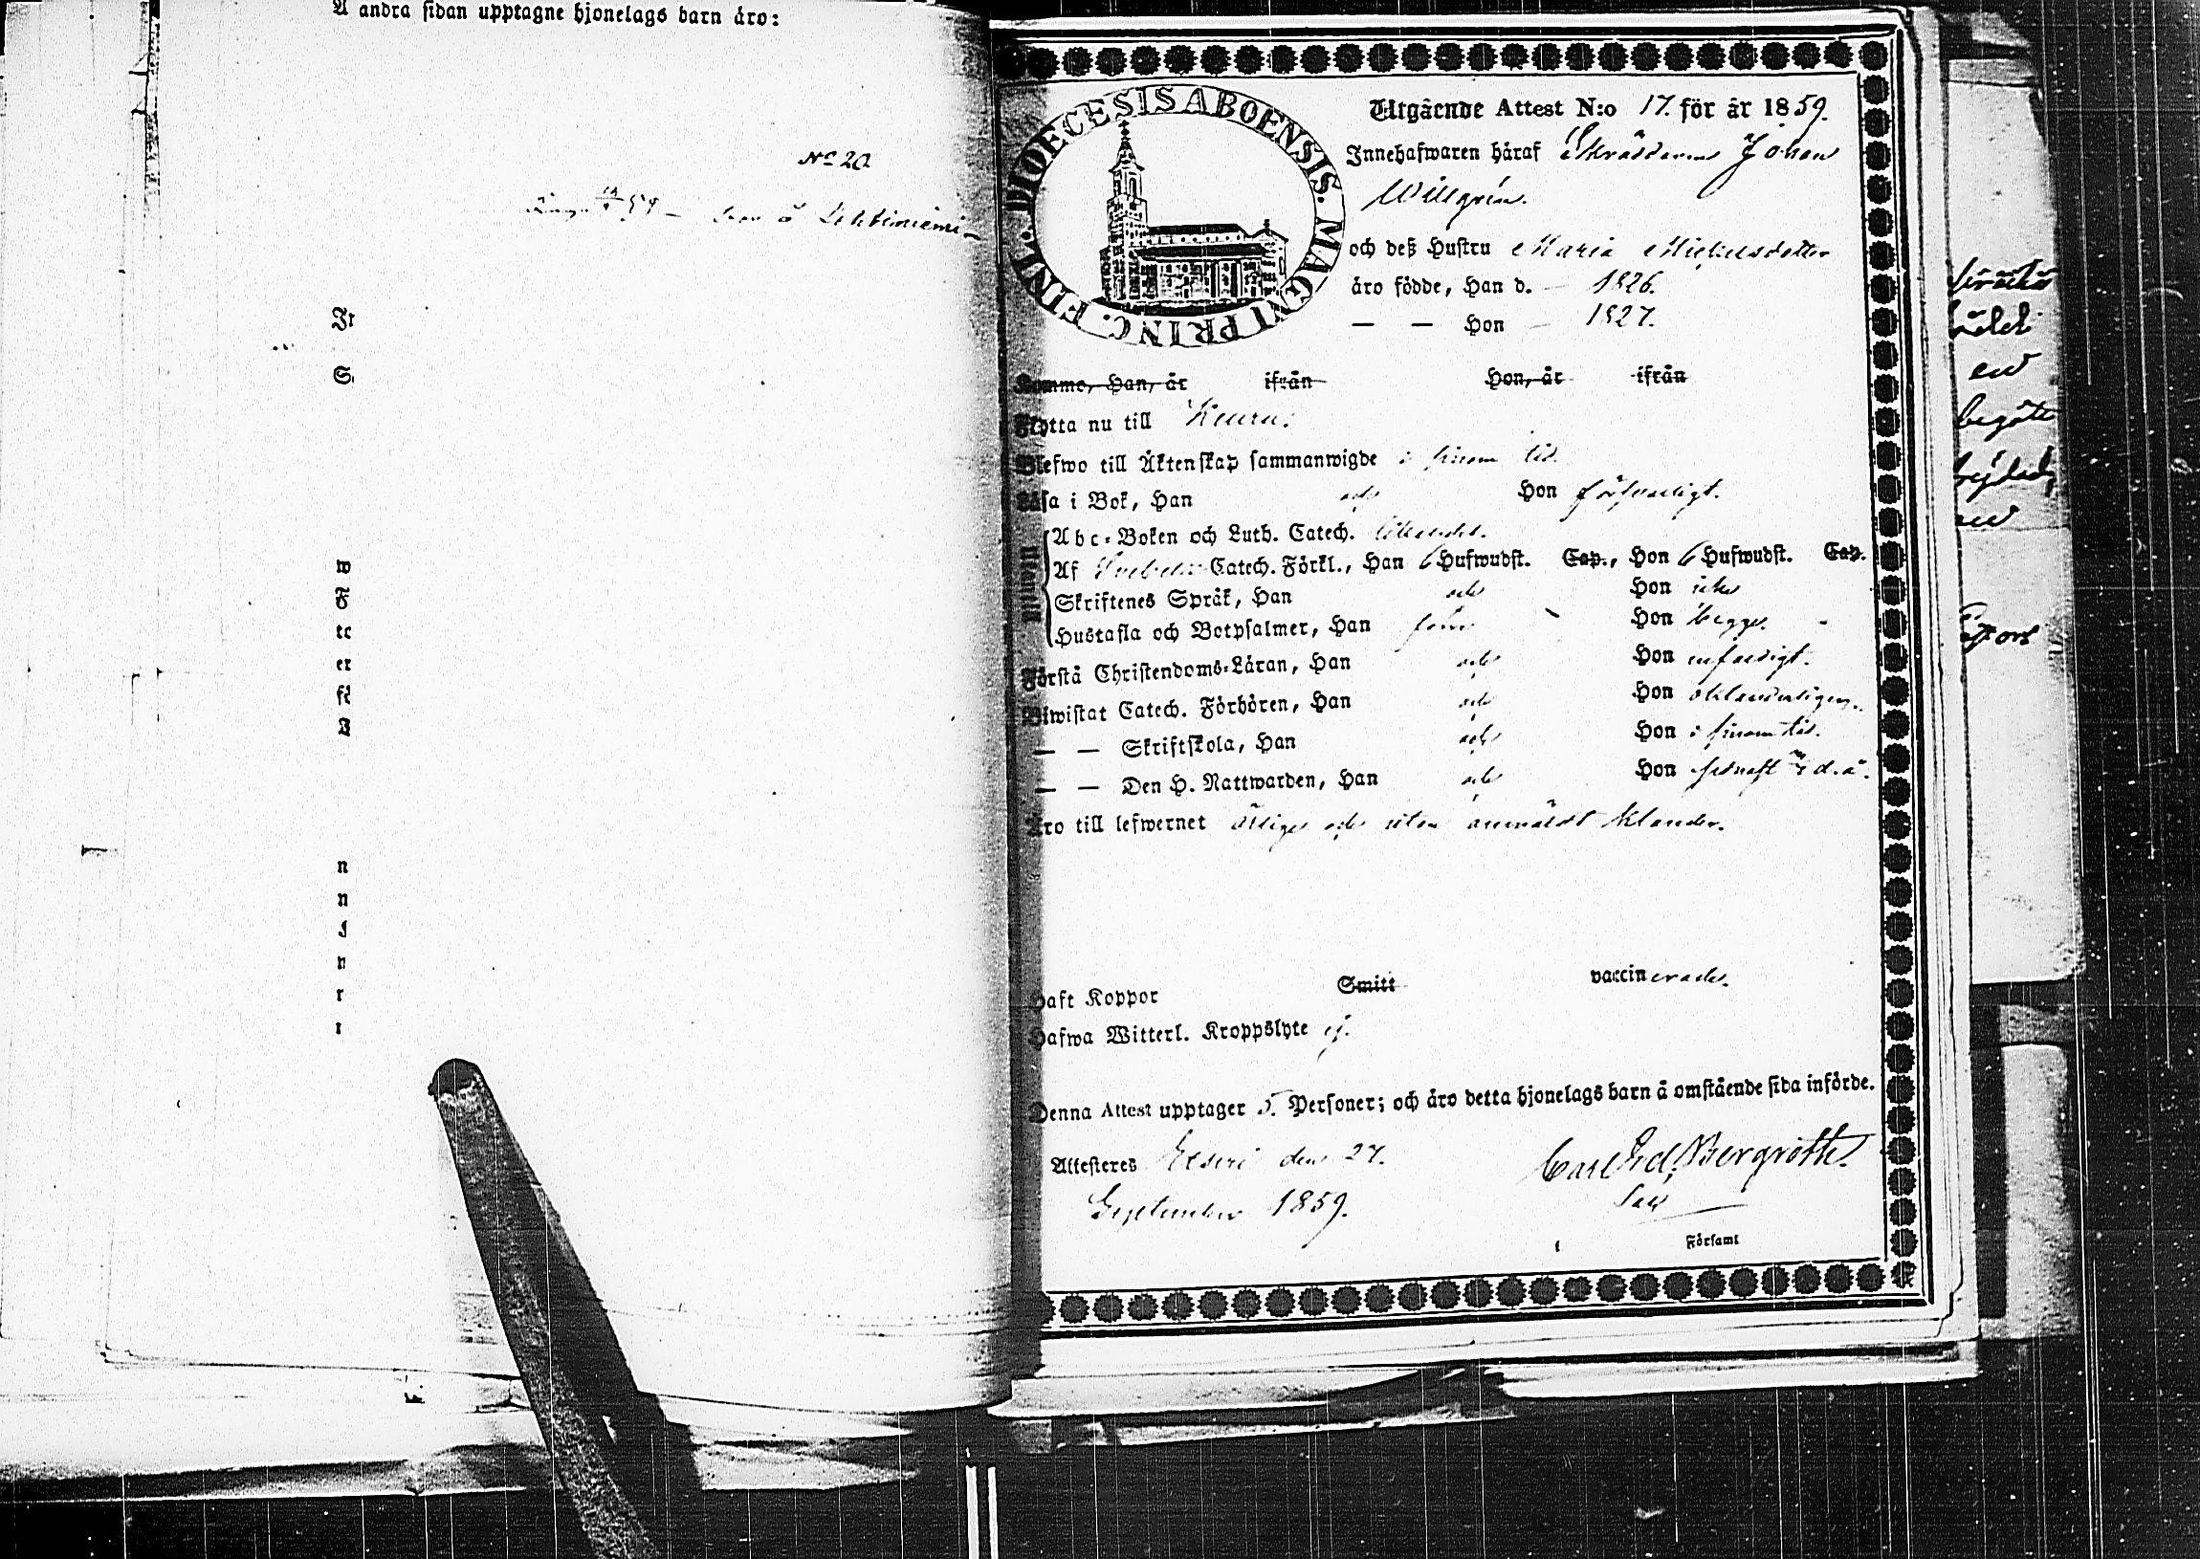 A andra sidan upptagne hjonelags barn äro:
No 20
å Lehtiniemi
DIOECESIS ABOENSIS. MAGNI PRINC. FINL.
Utgående Attest N:o 17. för år 1859.
Innehafwaren häraf Skräddaren Johan
Willgrén.
och deß Hustru Maria Michelsdotter
äro födde, Han d. — 1826.
— — Hon — 1827.
Komme, Han, år ifrån Hon, år ifrån
Flytta nu till Keuru.
Blefwo till Äktenskap sammanwigde i sinom tid.
Läsa i Bok, Han och Hon försvarligt.
Utantill
Abc-Boken och Luth. Catech.
Af Svebelii Catech. Förkl., Han 6 Hufwudst. Cap., Hon 6 Hufwudst. Cap.
Skriftenes Språk, Han och Hon icke
Hustafla och Botpsalmer, Han förra Hon begge.
Förstå Christendoms-Läran, Han och Hon enfaldigt.
Biwistat Catech. Förhören, Han och Hon oklanderligen.
— — Skriftskola, Han och Hon i sinom tid.
— — Den H. Nattwarden, Han och Hon d.å.
Äro till lefwernet ärliga och utan anmäldt klander.
Haft Koppor Smitt vaccinerade.
Hafwa Witterl. Kroppslyte ej.
Denna Attest upptager 5. Personer; och äro detta hjonelags barn å omstående sida införde.
Attesteres Etseri den 27.
September 1859.
Carl Ed. Bergroth.
Sac
Församl